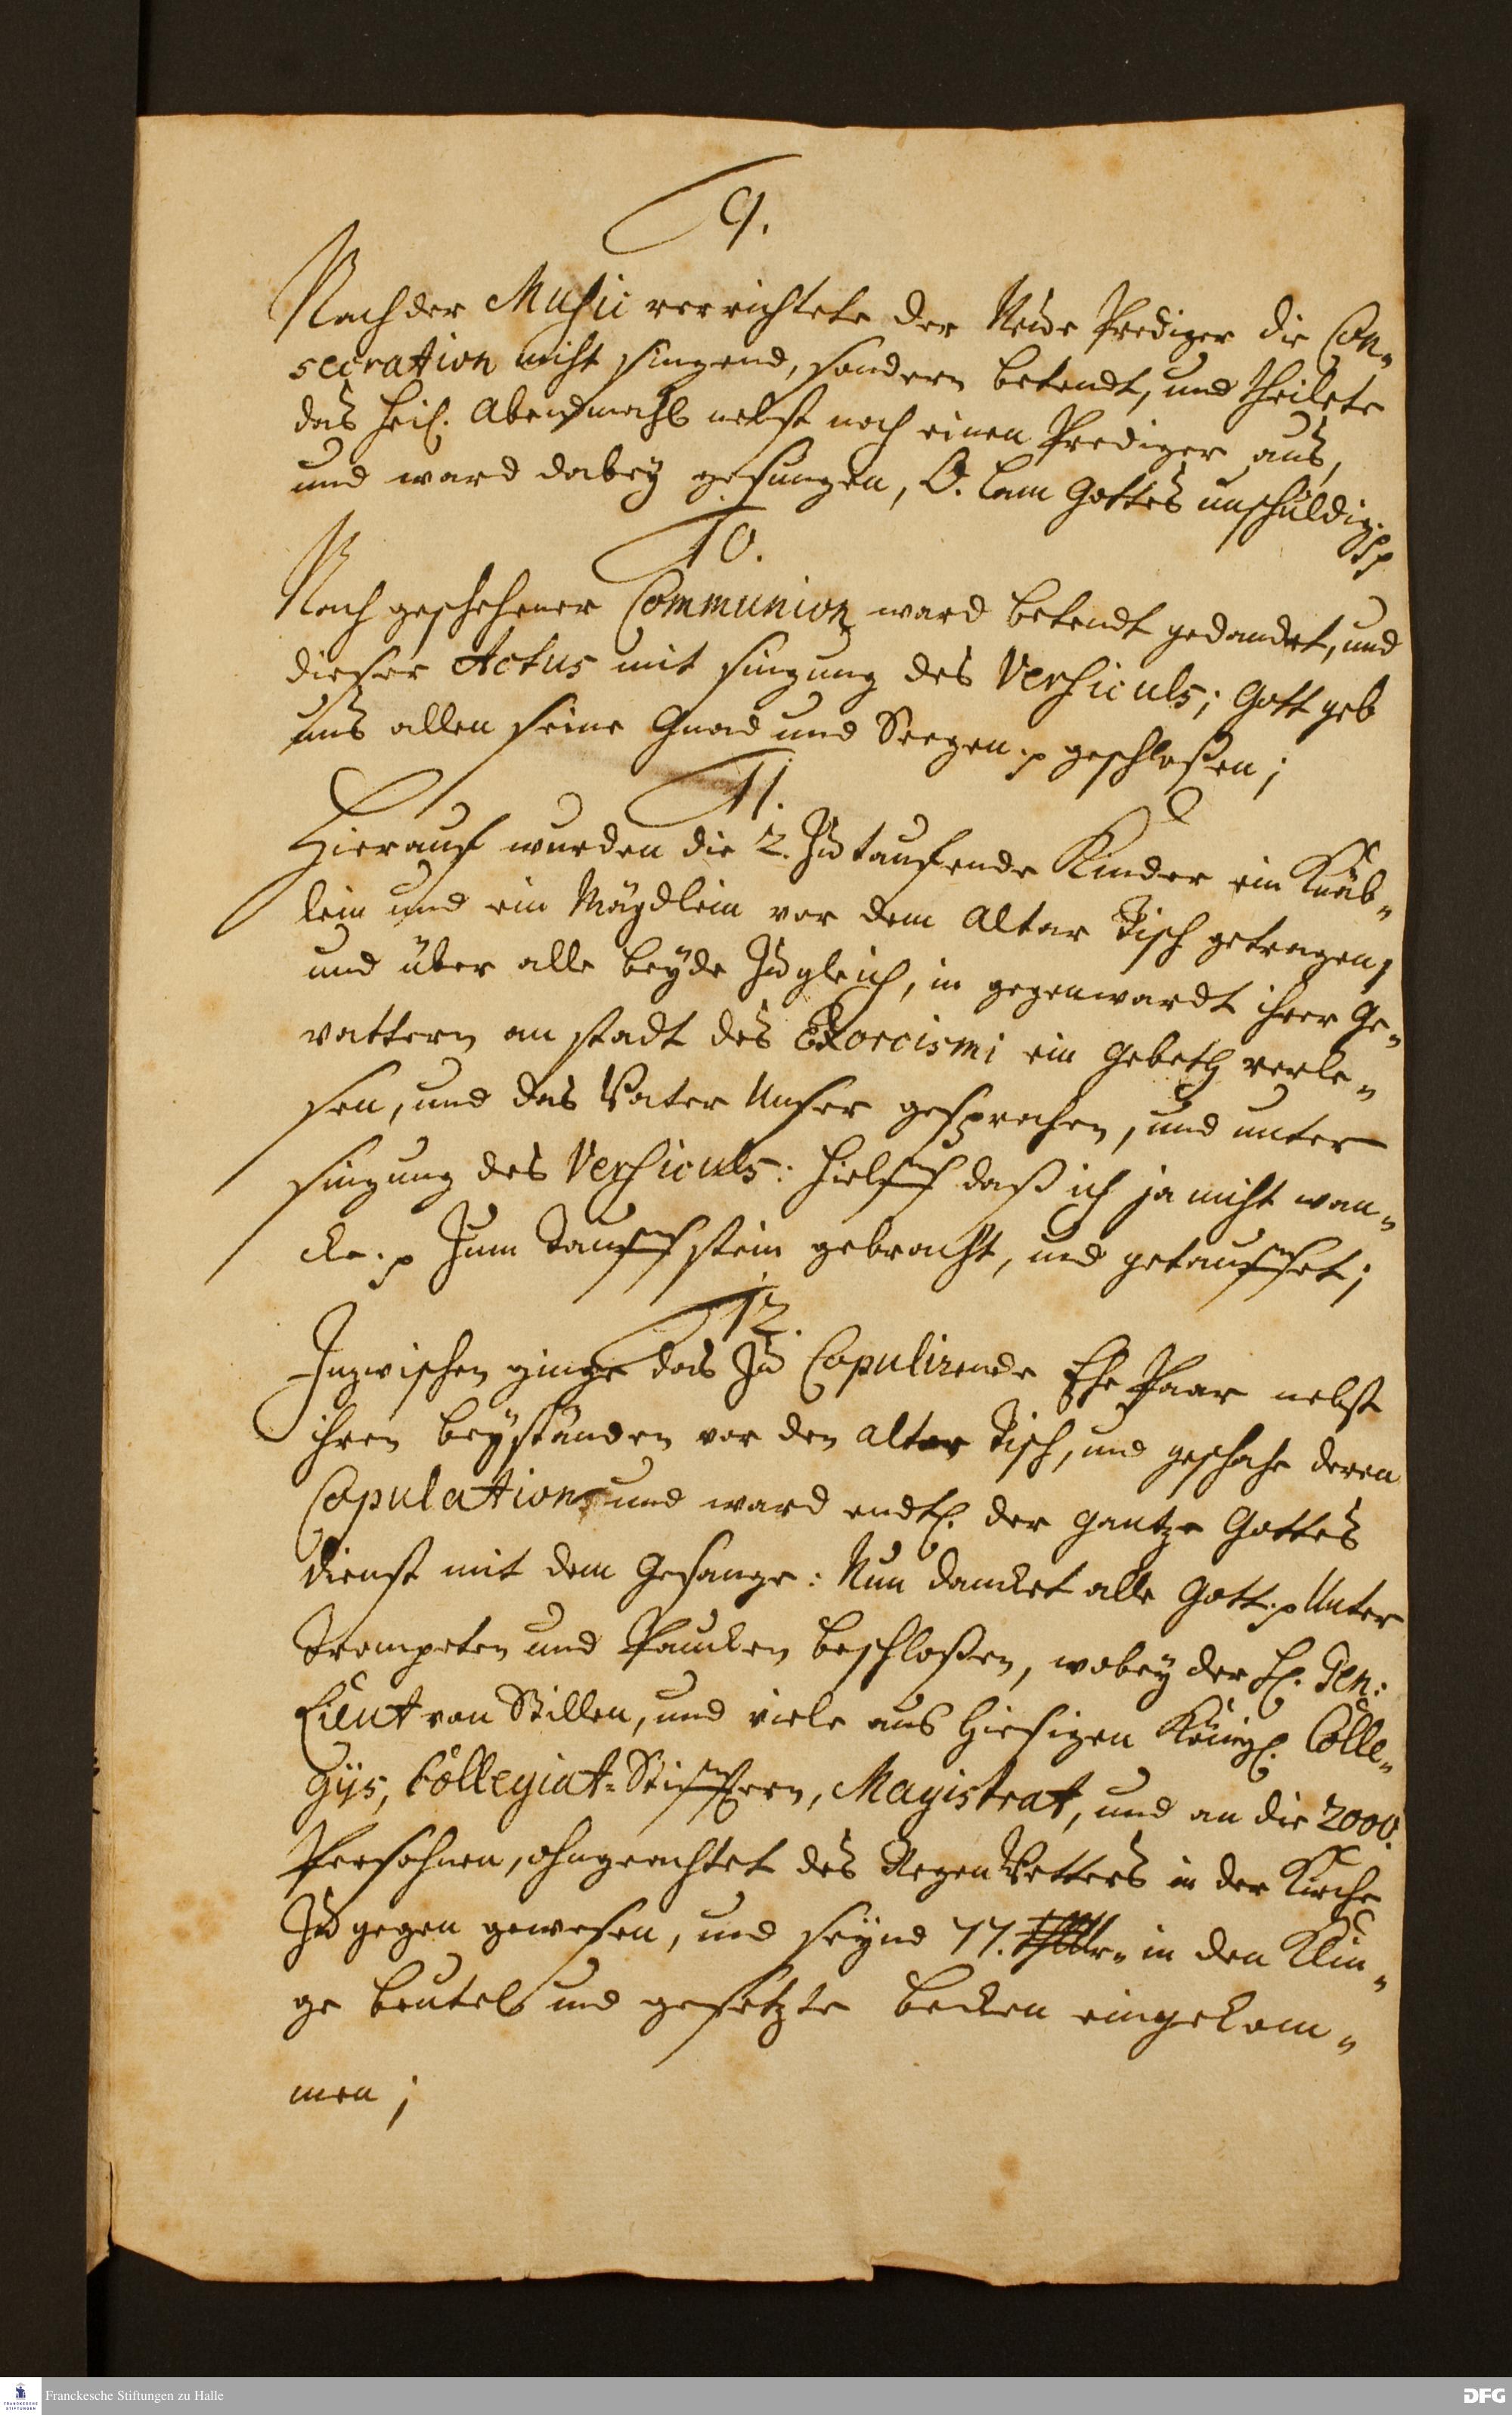 9.
Nach der Music verrichtete der Neüe Prediger die Con-
secration nicht singend, sondern betendt, und theilete
das heil. Abendmahl nebst noch einen Prediger aus,
und ward dabey gesungen, O. Lam Gottes unschuldig. pp
10.
Nach geschehener Communion ward betendt gedancket, und
dieser Actus mit singung des Versiculs; Gott geb
uns allen seine Gnad und Seegen. p geschloßen;
11.
Hierauf wurden die 2. Zu taufende Kinder ein Knäb-
lein und ein Mägdlein vor dem Altar Tisch getragen,
und über alle beyde Zugleich, in gegenwardt ihrer Ge-
vattern an stadt des Exorcismi ein Gebeth verle-
sen, und das Vater Unser gesprochen, und unter
singung des Versiculs: Hielff daß ich ja nicht wan-
cke. p Zum Tauffstein gebracht, und getauffet;
12.
Inzwischen ginge das Zu Copulirende Ehe Paar nebst
ihren beyständen vor den Altar Tisch, und geschahe deren
Copulation, und ward endl. der gantze Gottes
dienst mit dem Gesange: Nun dancket alle Gott. p Unter
Trompeten und Paucken beschloßen, wobey der H. Gen:
Lieut von Stillen, und viele aus hiesigen Königl. Colle-
gijs, Collegiat-Stifftern, Magistrat, und an die 2000.
Persohnen, ohngeachtet des Regen Wetters in der Kirche
Zu gegen gewesen, und seynd 77. Thlr. in den Klin-
ge beutel und gesetzte Becken eingekom-
men;
Franckesche Stiftungen zu Halle
DFG